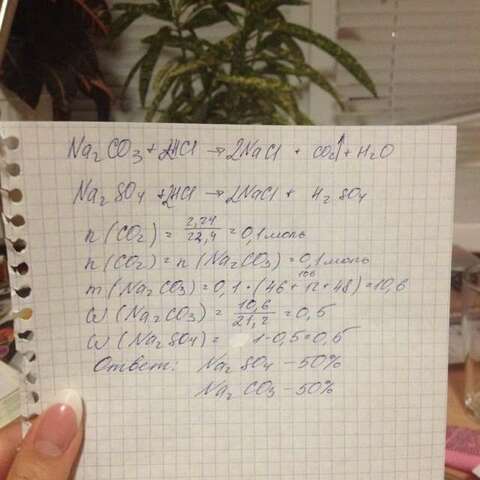 Na₂CO₃ + 2HCl → 2NaCl + CO₂↑ + H₂O
Na₂SO₄ + 2HCl → 2NaCl + H₂SO₄
n(CO₂) = 2,24/22,4 = 0,1 моль
n(CO₂) = n(Na₂CO₃) = 0,1 моль
106
m(Na₂CO₃) = 0,1 · (46 + 12 + 48) = 10,6
ω(Na₂CO₃) = 10,6/21,2 = 0,5
ω(Na₂SO₄) = 1-0,5=0,5
Ответ: Na₂SO₄ - 50%
Na₂CO₃ - 50%